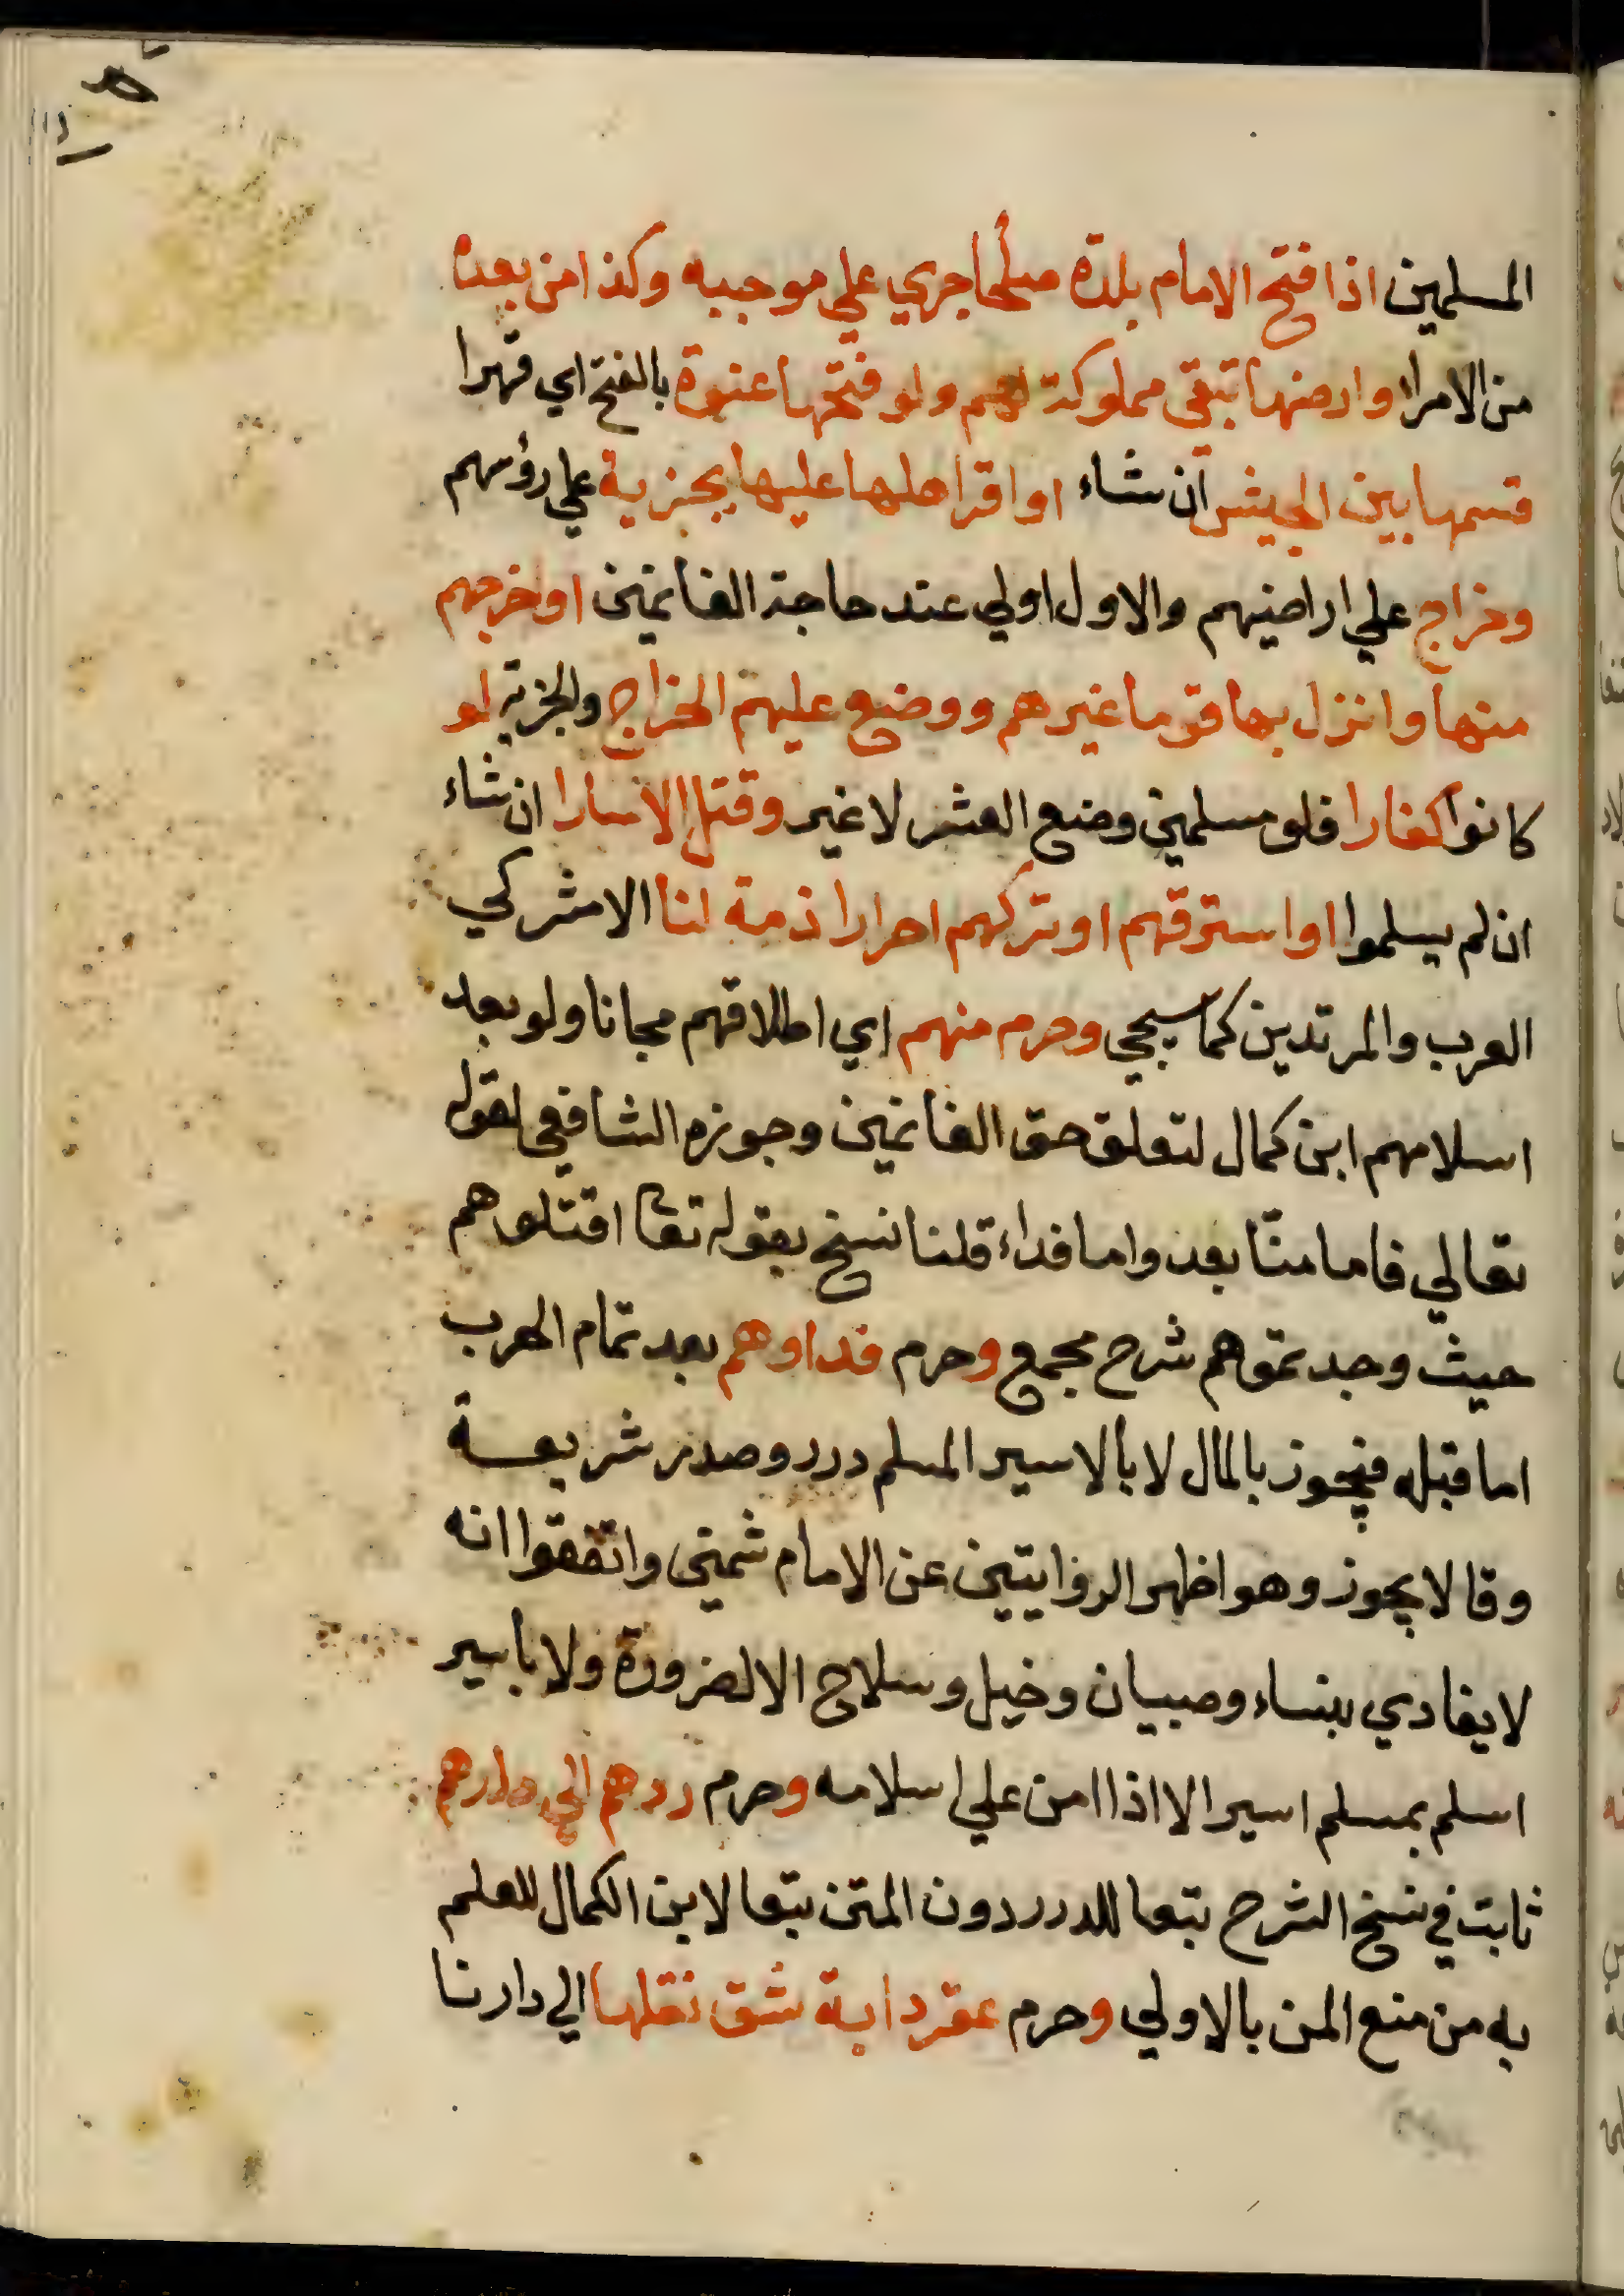 المسلمين اذا فتح الامام بلدة صلحا جري علي موجبه وكذا من بعده
من الامرا وارضها تبقي مملوكة لهم ولو فتحها عنوة بالفتح اي قهرا
قسمها بين الجيش ان شاء او اقر اهلها عليها بجزية علي رؤسهم
وخراج علي اراضيهم والاول اولي عند حاجة الغانمين او اخرجهم
منها وانزل بها قوما غيرهم ووضع عليهم الخراج والجزية لو
كانوا كفارا فلو مسلمين وضع العشر لا غير وقتل الاسارا ان شاء
ان لم يسلموا او استرقهم او تركهم احرارا ذمة لنا الا مشركي
العرب والمرتدين كما سيجي وحرم منهم اي اطلاقهم مجانا ولو بعد
اسلامهم ابن كمال لتعلق حق الغانمين وجوزه الشافعي لقوله
تعالي فاما منّا بعد واما فداء قلنا نسخ بقوله تعا اقتلوهم
حيث وجدتموهم شرح مجمع وحرم فداوهم بعد تمام الحرب
اما قبله فيجوز بالمال لا بالاسير المسلم درر وصدر شريعة
وقالا يجوز وهو اظهر الروايتين عن الامام شمني واتفقوا انه
لا يفادي بنساء وصبيان وخيل وسلاح الا لضرورة ولا باسير
اسلم بمسلم اسير الا اذا امن علي اسلامه وحرم ردهم الي دارهم
ثابت في نسخ الشرح تبعا للدرر دون المتن تبعا لابن الكمال للعلم
به من منع المن بالاولي وحرم عقر دابة شق نقلها الي دارنا